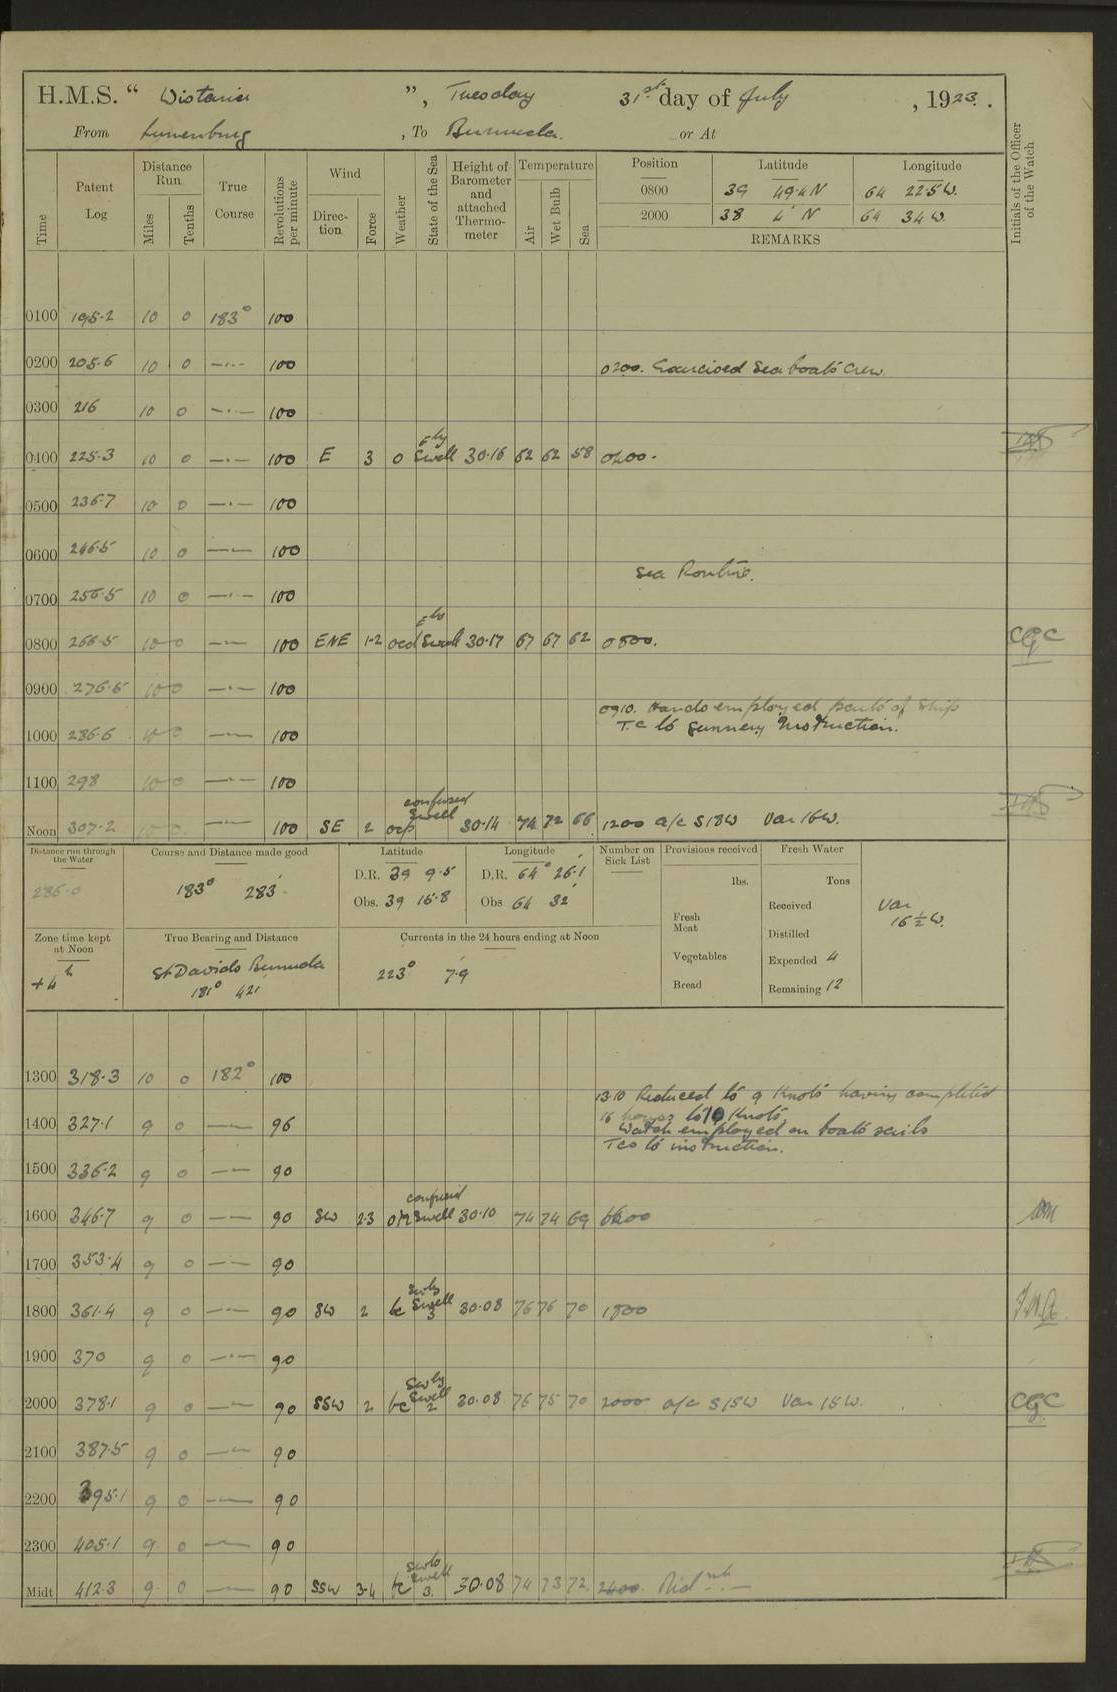 H.M.S. “ Wistaria ”, Tuesday 31st day of July, 1923.
From Lunenburg, To Bermuda. or At
Time
Patent Log
Distance Run
Miles
Tenths
True Course
Revolutions per minute
Wind
Direction
Force
Weather
State of the Sea
Height of Barometer and attached Thermometer
Temperature
Air
Wet Bulb
Sea
Position Latitude Longitude
0800 39 49.4 N 64 22.5 W.
2000 38 4' N 64 34 W.
REMARKS
Initials of the Officer of the Watch
0100 195.2 10 0 183° 100
0200 205.6 10 0 —·— 100 0200. Exercised Sea boats Crew.
0300 216 10 0 —·— 100
0400 225.3 10 0 —·— 100 E 3 o Ely Swell 30.16 62 62 58 0400.
0500 236.7 10 0 —·— 100
0600 246.5 10 0 —— 100
Sea Routine.
0700 256.5 10 0 —·— 100
0800 266.5 10 0 —— 100 ENE 1-2 ocd Ely Swell 30.17 67 67 62 0800. CGC
0900 276.5 10 0 —·— 100
0910. Hands employed parts of Ship
1000 286.6 10 0 —— 100 T.C to Gunnery Instruction.
1100 298 10 0 —·— 100
Noon 307.2 10 0 —— 100 SE 2 ocp confused Swell 30.14 74 72 66 1200 a/c S18W Var 16W.
Distance run through the Water
286.0
Course and Distance made good
183° 283'
Latitude
D.R. 39 9.5
Obs. 39 16.8
Longitude
D.R. 64° 26.1
Obs 64 32'
Number on Sick List
Provisions received
lbs.
Fresh Meat
Vegetables
Bread
Fresh Water
Tons
Received
Distilled
Expended 4
Remaining 12
Var 16½ W.
Zone time kept at Noon
+4h
True Bearing and Distance
St Davids Bermuda
181° 421
Currents in the 24 hours ending at Noon
223° 7.9
1300 318.3 10 0 182° 100
1310 Reduced to 9 Knots having completed
1400 327.1 9 0 —— 96 16 hours to 10 Knots
Watch employed on boats sails
TCs to instruction.
1500 336.2 9 0 —— 90
1600 346.7 9 0 —— 90 SW 2.3 confused Swell 30.10 74 74 69 1600
1700 353.4 9 0 —— 90
1800 361.4 9 0 —— 90 SW 2 bc Swly Swell 3 30.08 76 76 70 1800
1900 370 9 0 —·— 90
2000 378.1 9 0 —— 90 SSW 2 bc Swly Swell 2 30.08 76 75 70 2000 a/c S15W Var 15 W. CGC
2100 387.5 9 0 —— 90
2200 395.1 9 0 —— 90
2300 405.1 9 0 —— 90
Midt 412.3 9 0 —— 90 SSW 3-4 bc Swly Swell 3. 30.08 74 73 72 2400.